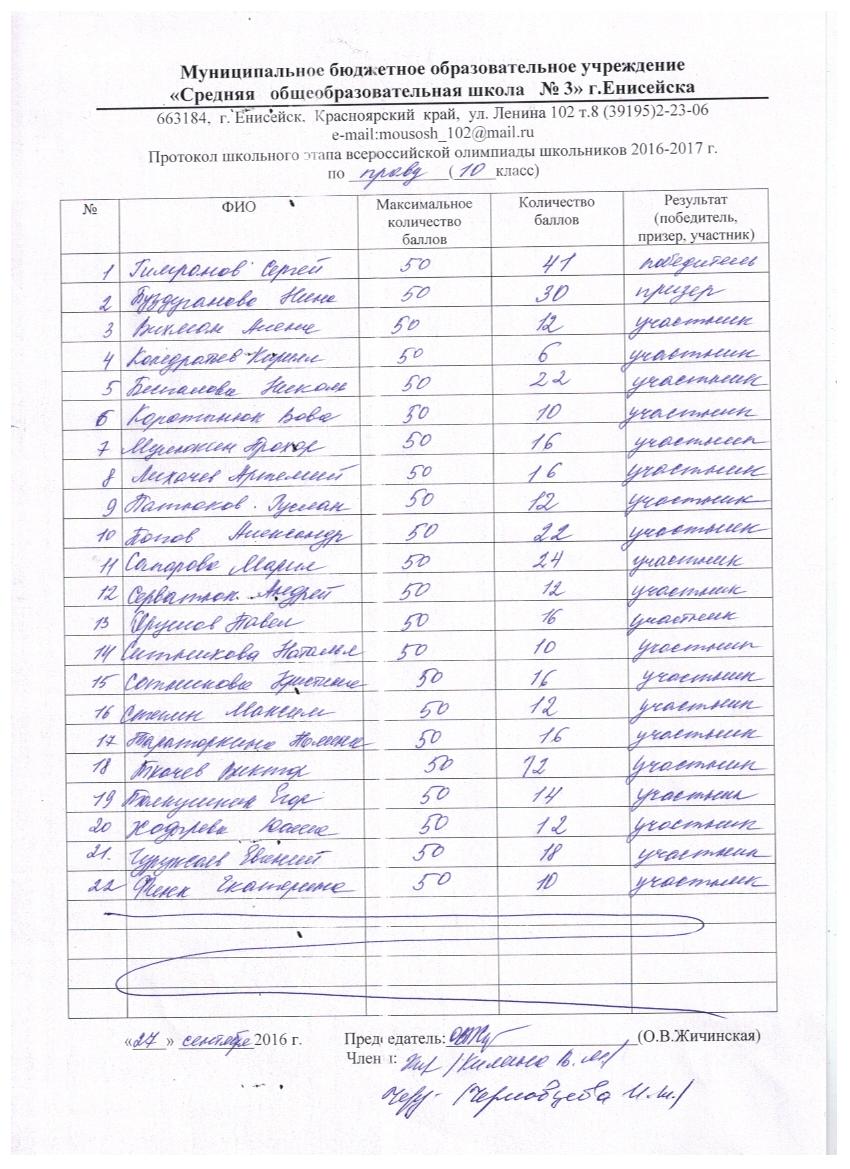 Муниципальное бюджетное образовательное учреждение
«Средняя общеобразовательная школа № 3» г.Енисейска
663184, г. Енисейск. Красноярский край, ул. Ленина 102 т.8 (39195)2-23-06
e-mail:mousosh_102@mail.ru
Протокол школьного этапа всероссийской олимпиады школьников 2016-2017 г.
по праву (10 класс)
№ ФИО Максимальное количество баллов Количество баллов Результат (победитель, призер, участник)
1 Сергей 50 41 победитель
2 Буздуганова Нина 50 30 призер
3 Викман Алена 50 12 участник
4 Кондратьев Кирилл 50 6 участник
5 Беспалова 50 22 участник
6 Коротынюк Вова 50 10 участник
7 Прохор 50 16 участник
8 Лихачев Артемий 50 16 участник
9 Патюков Руслан 50 12 участник
10 Попов Александр 50 22 участник
11 Сапарова Мария 50 24 участник
12 Серватюк Андрей 50 12 участник
13 Павел 50 16 участник
14 Ситникова Наталья 50 10 участник
15 Сотникова Кристина 50 16 участник
16 Максим 50 12 участник
17 Тараторкина Полина 50 16 участник
18 Ткачев Виктор 50 12 участник
19 Егор 50 14 участник
20 50 12 участник
21. Евгений 50 18 участник
22 Финк Екатерина 50 10 участник
«27» сентября 2016 г. Председатель: (О.В.Жичинская)
Члены: /Килина В.М/
/Черновцева И.И./